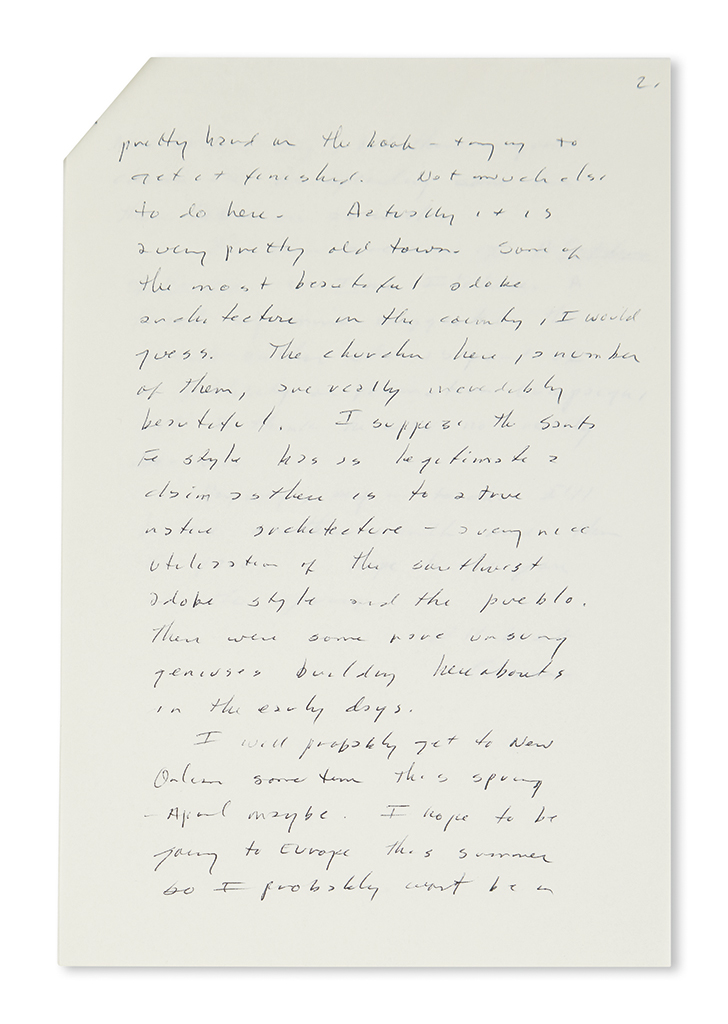 2.
pretty hard on the book – trying to
get it finished. Not much else
to do here. Actually it is
a very pretty old town. Some of
the most beautiful adobe
architecture in the country, I would
guess. The churches here, a number
of them, are really incredibly
beautiful. I suppose the Santa
Fe style has as legitimate a
claim as there is to a true
native architecture – a very nice
utilization of the southwest
adobe style and the pueblo.
There were some rare unsung
geniuses building hereabouts
in the early days.
I will probably get to New
Orleans some time this spring
– April maybe. I hope to be
going to Europe this summer
so I probably wont be in